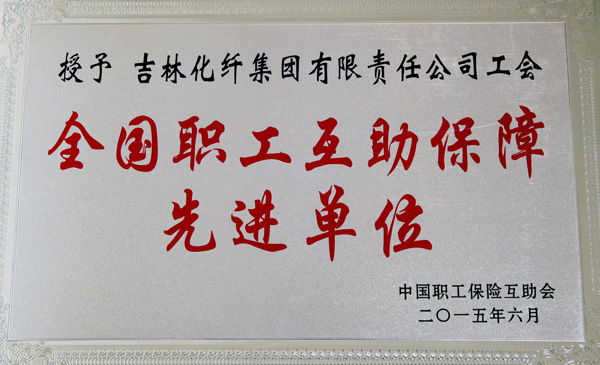 授予 吉林化纤集团有限责任公司工会
全国职工互助保障
先进单位
中国职工保险互助会
二〇一五年六月